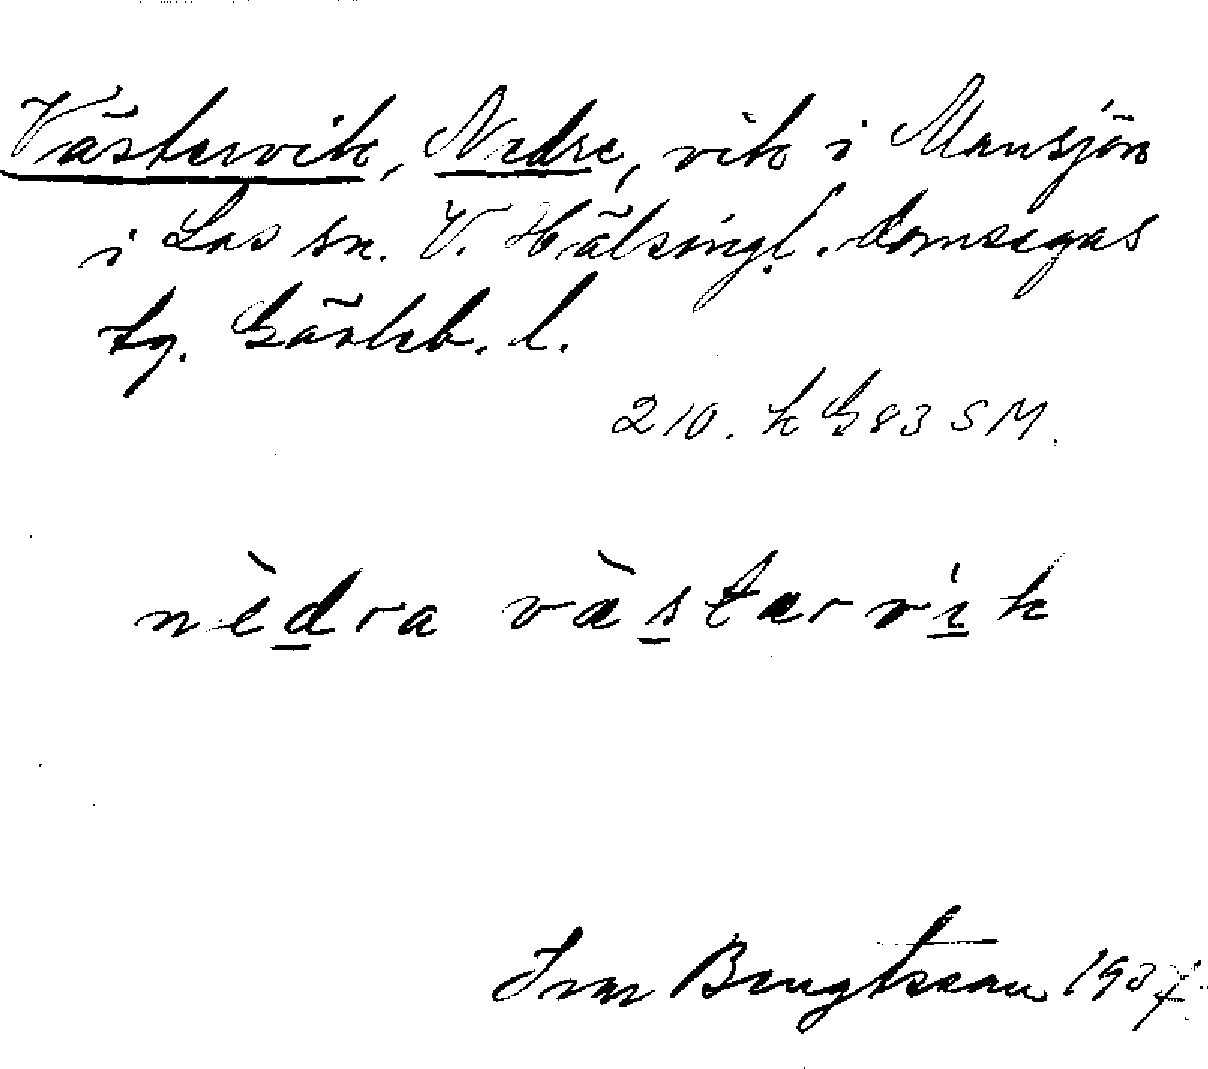 Västervik, Nedre, vik i Mansjön
i Los sn. V. Hälsingl. domsagas
tg. Gävleb. l.
210. k G 83 SM.
nèdra västarvik
Ivar Bengtsson 1937.